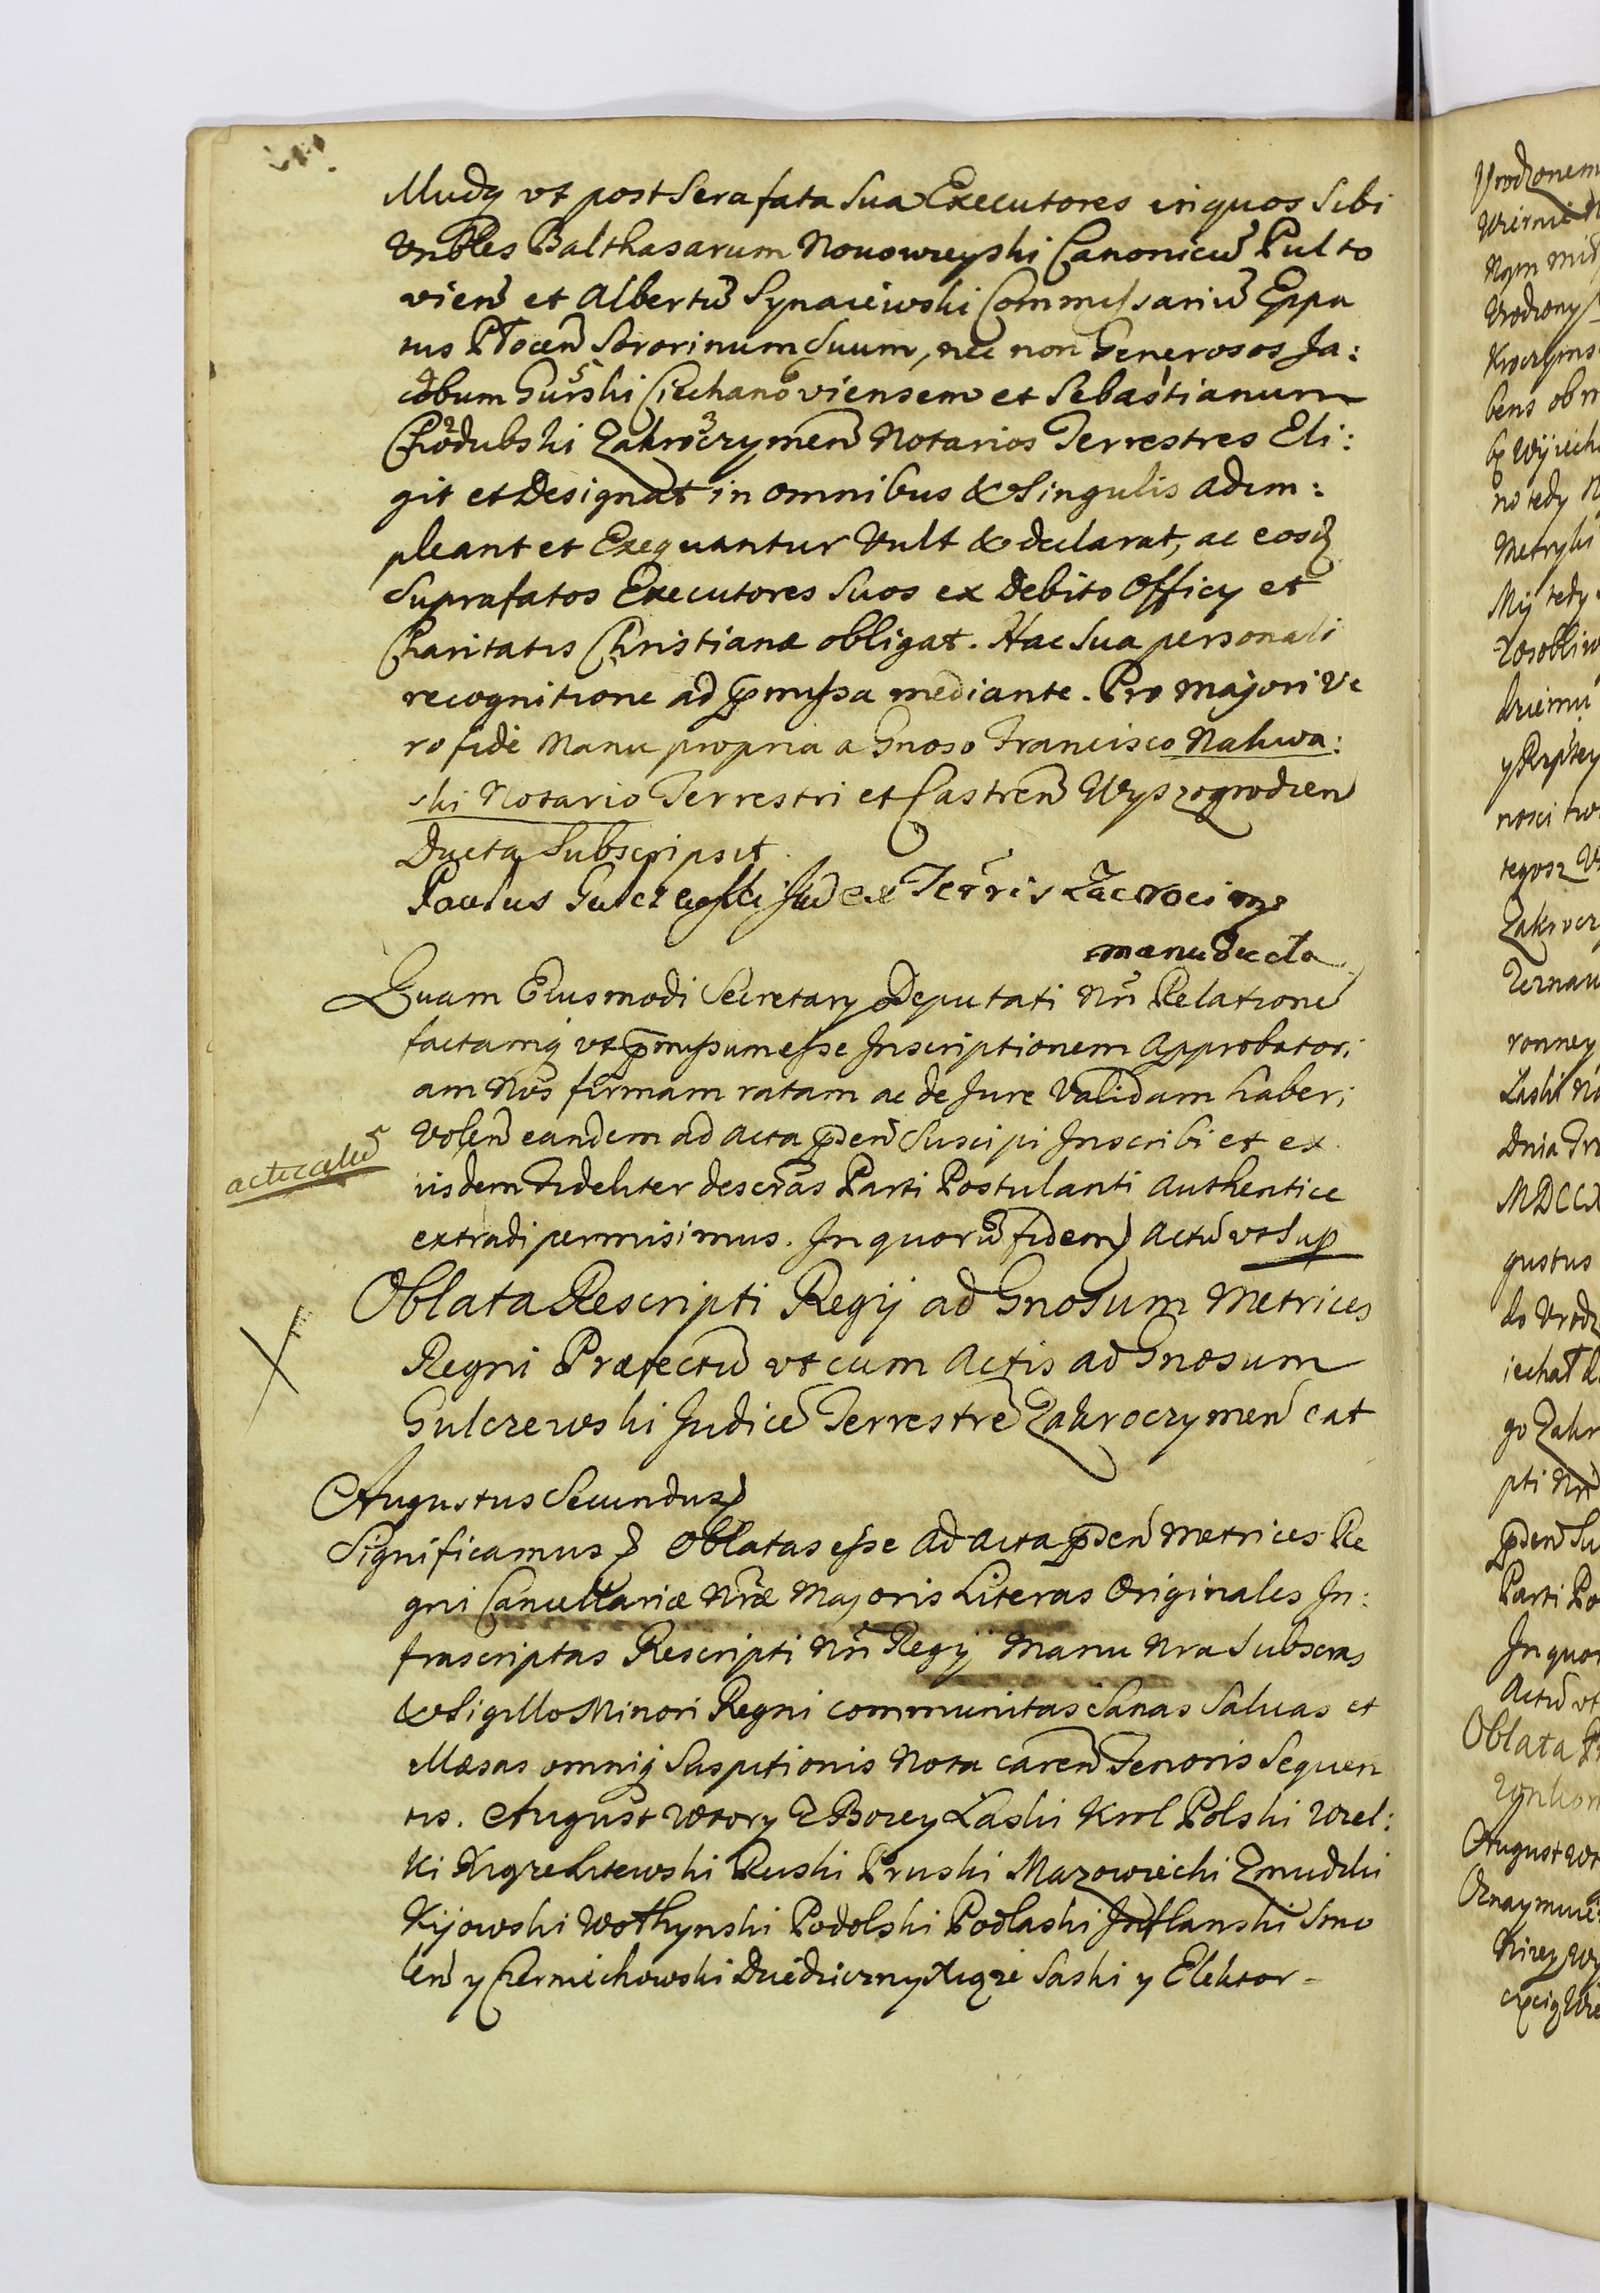 Illudq vt post Sera fata Sua Executores in quos Sibi
Vnbles Balthasarum Nouowieyski Canonicũ Pulto
vien̄ et Albertũ Synaiewski Commissariũ Eppa
tus Płocen̄ Sororinum Suum, nec non Generosos Ja:
cobum Gurski Ciechanoviensem et Sebastianum
Chodubski Zakroczymen̄ Notarios Terrestres Eli:
git et Designat in omnibus & Singulis adim:
pleant et Exequantur Vult & declarat, ac eosd
Suprafatos Executores Suos ex Debito Officy et
Charitatis Christianæ obligat. Hac Sua personali
recognitione ad p̄missa mediante. Pro Majori Ve
ro fide Manu propria a Gnoso Francisco Nakwa:
ski Notario Terrestri et Castren̄ Wyszogrodien
Ducta Subscripsit.
Paulus Gulczewski Judex Terris Zacrocimẽ
manu ducta
Quam Eiusmodi Secretary Deputati Nri Relatione
factamq vt p̄missum esse Inscriptionem Approbatori
am Nos firmam ratam ac de Jure Validam haberi
Volen̄ eandem ad acta p̄sen̄ Suscipi Inscribi et ex
iisdem Fideliter descr̃as Parti Postulanti authentice
extradi permisimus. In quorũ fidem Actũ vt Sup
acticatũ
Oblata Rescripti Regij ad Gnosum Metrices
Regni Præfectũ vt cum Actis ad Gnosum
Gulczewski Judicẽ Terrestrẽ Zakroczymen̄ eat
Augustus Secundus
Significamus Oblatas esse ad acta p̄sen̄ Metrices Re
gni Cancellariæ Nræ Majoris Literas Originales In:
frascriptas Rescripti Nri Regij Manu Nra Subscras
& Sigillo Minori Regni communitas Sanas Saluas et
Illæsas omniq Suspitionis Nota caren̄ Tenoris Sequen
tis. August Wtory Z Bozey Łaski Krol Polski Wiel:
ki Xiąze Litewski Ruski Pruski Mazowiecki Zmudzki
Kijowski Wołhynski Podolski Podlaski Inflanski Smo
len̄ y Czerniechowski Dziedziczny Xiąze Saski y Elektor